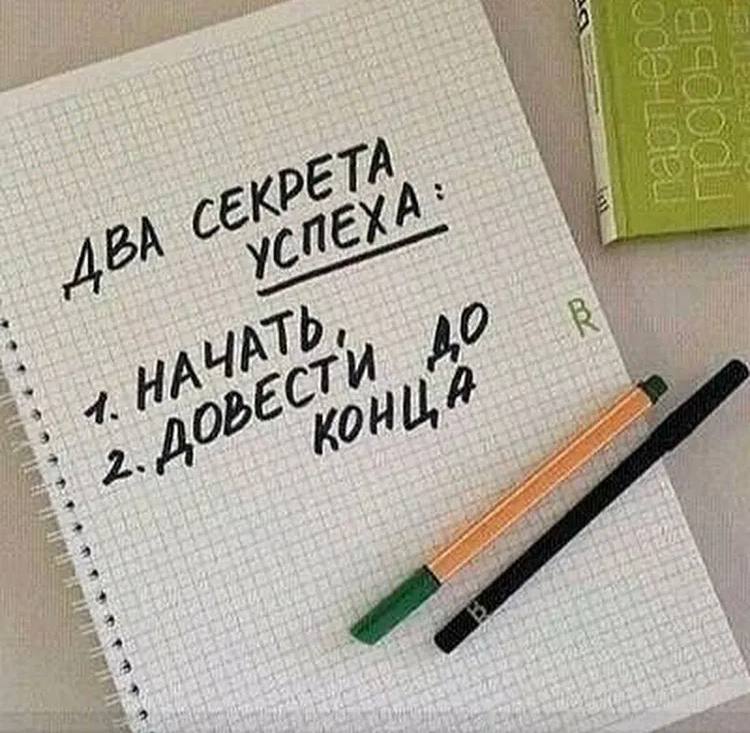 ДВА СЕКРЕТА
УСПЕХА:
1. НАЧАТЬ,
2. ДОВЕСТИ ДО
КОНЦА
партнеро
прорыв